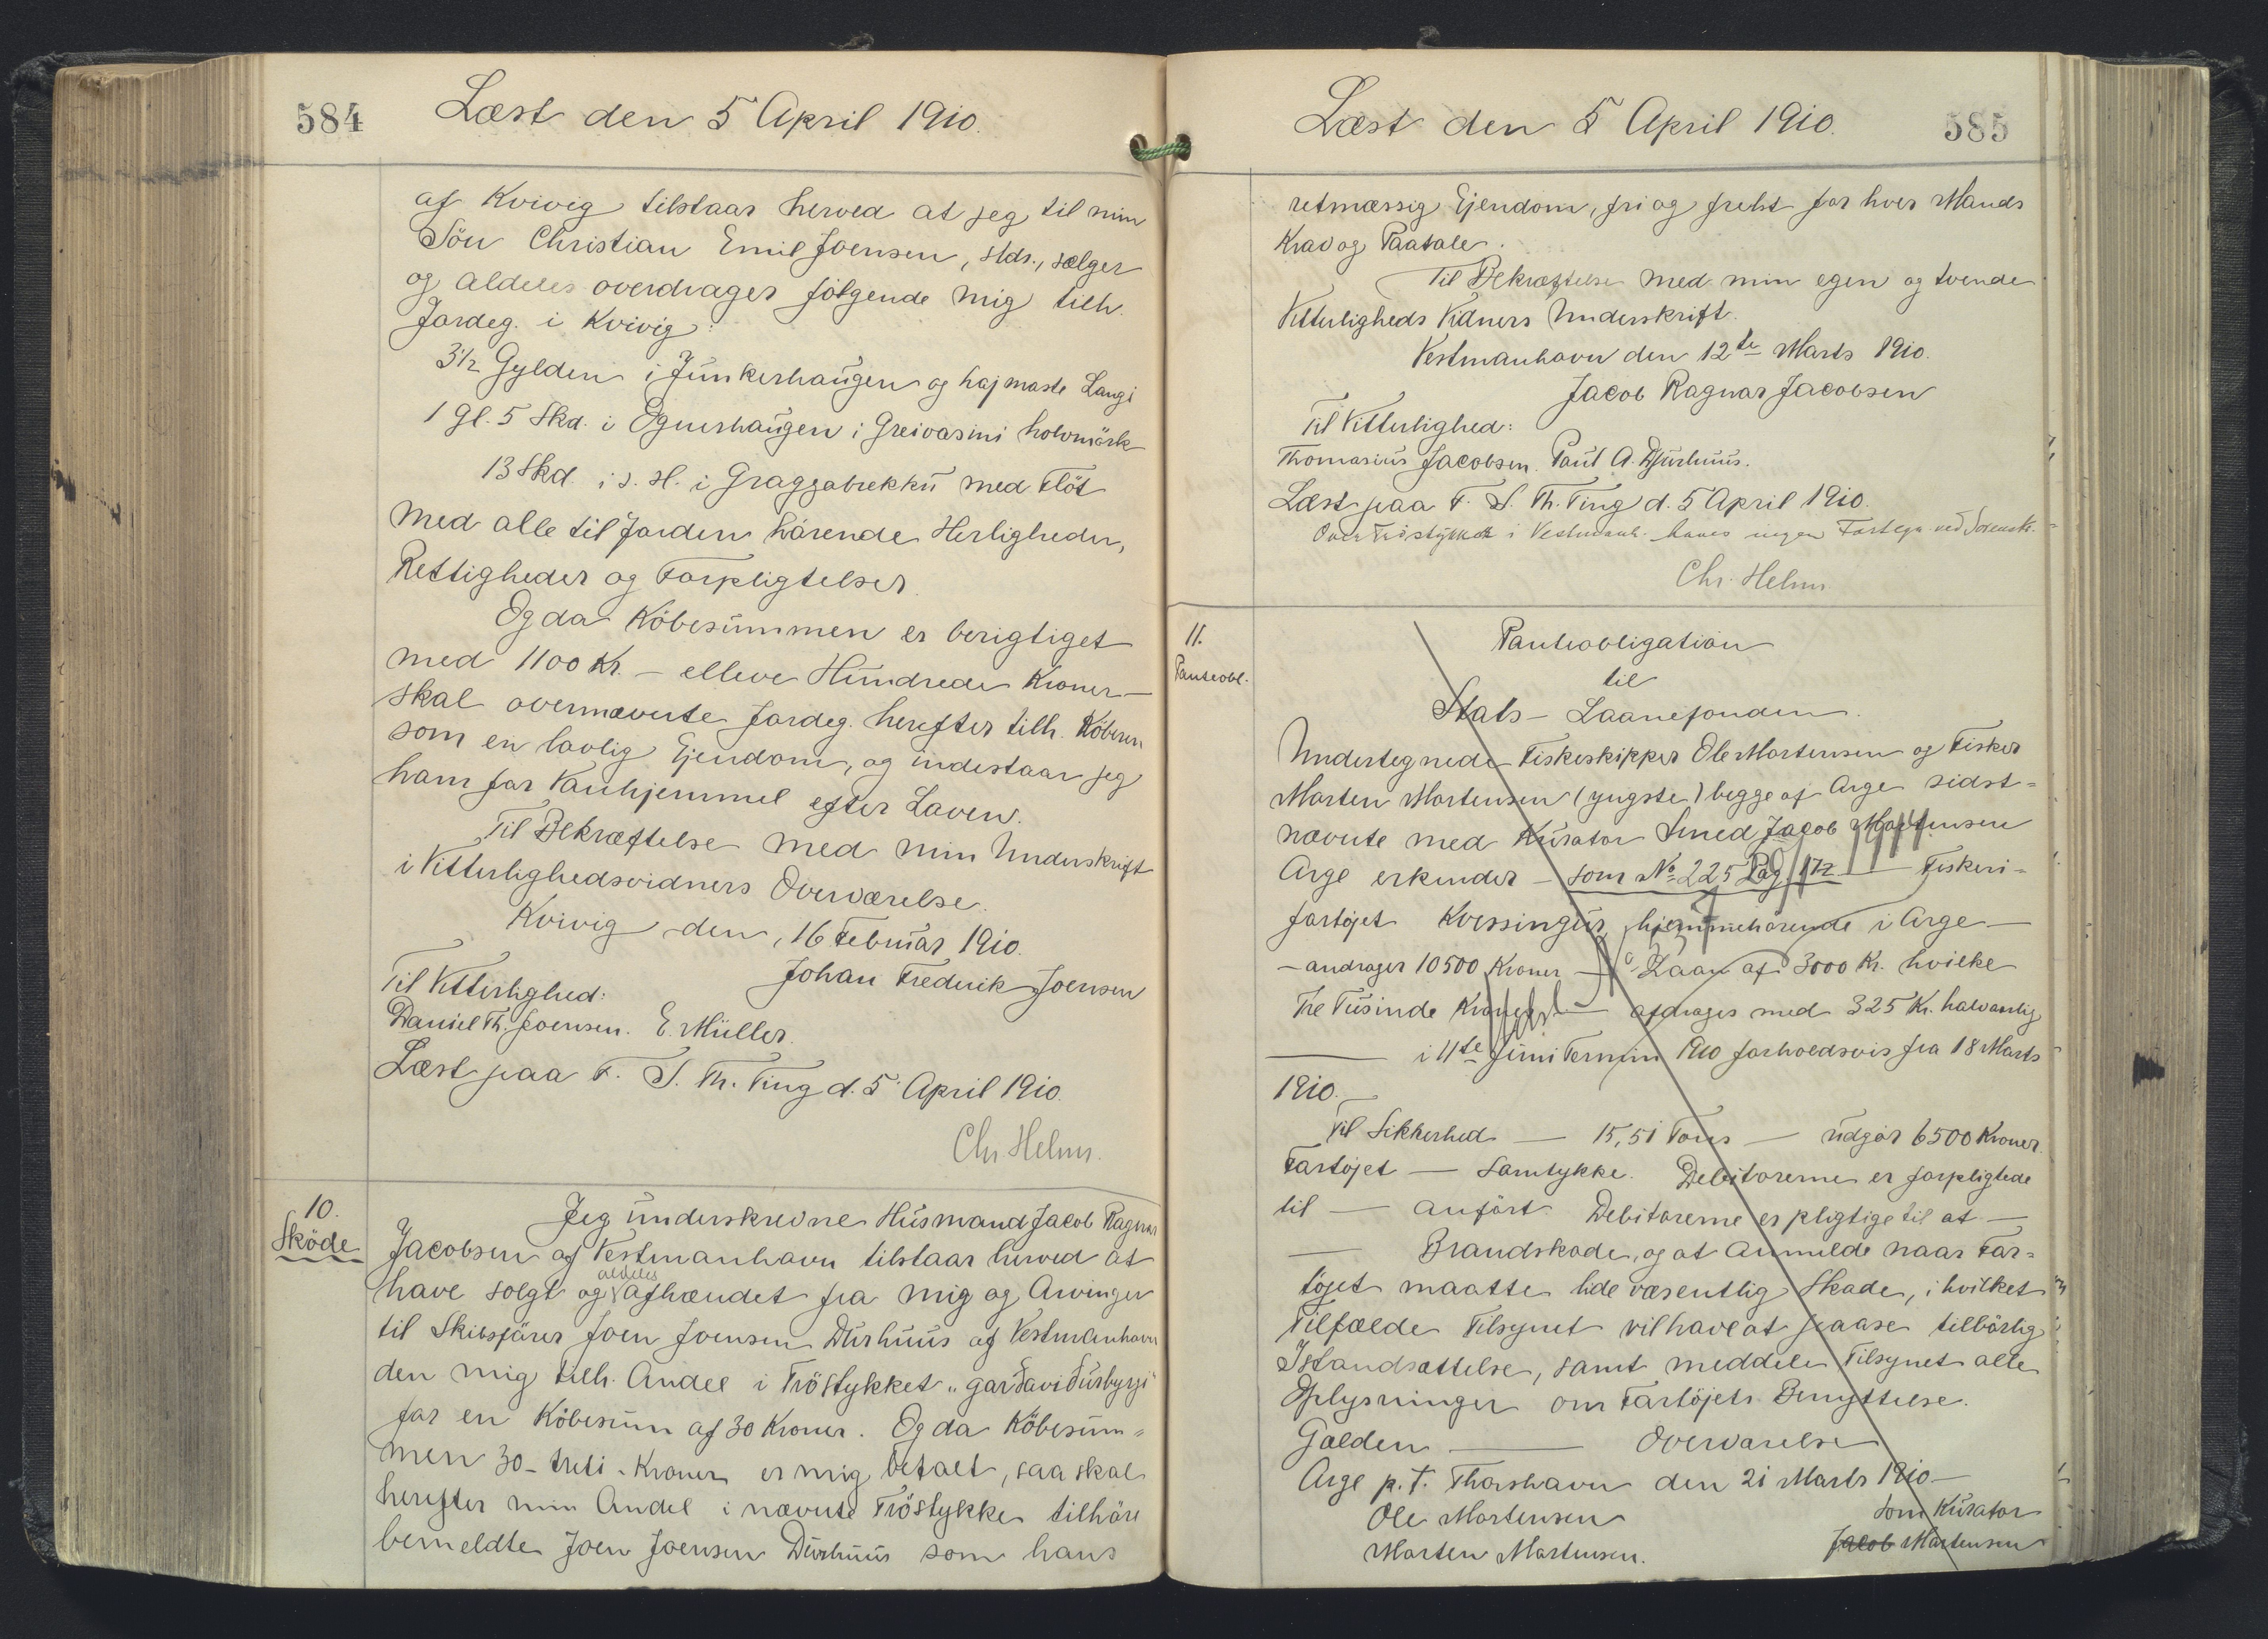 584
Læst den 5 April 1910.
af Kvivig tilstaar herved at jeg til min
Sön Christian Emil Joensen, sldr., sælger
og aldeles overdrager følgende mig tilh.
Jordeg. i Kvivig:
3 1/2 Gylden i Junkerhaugen og hajmaste Langi
1 Gl. 5 Skd. i Ognerhaugen i Greivasini holvmörk
13 Skd. i s. H. i Graggabrekku med Flöt
Med alle til Jorden hörende Herligheder,
Rettigheder og Forpligtelser.
Og da Köbesummen er berigtiget
med 1100 Kr. - elleve Hundrede Kroner -
skal ovennævnte Jordeg. herefter tilh. Köberen
som en lovlig Ejendom, og indestaar jeg
ham for Vanhjemmel efter Loven.
Til Bekræftelse med min Underskrift
i Vitterlighedsvidners Overværelse.
Kvivig den, 16 Februar 1910.
Johan Frederik Joensen
Til Vitterlighed:
Daniel Th. Joensen. E. Müller.
Læst paa F. S. Th. Ting d. 5 April 1910.
Chr Helms.
10.
Sköde
Jeg underskrevne Husmand Jacob Ragnar
Jacobsen af Vestmanhavn tilstaar herved at
have solgt og aldeles afhændet fra mig og Arvinger
til Skibsförer Joen Joensen Durhuus af Vestmanhavn
den mig tilh. Andel i Tröstykket "garðavidurbyrgi"
for en Köbesum af 30 Kroner. Og da Köbesum=
men 30 - treti - Kroner er mig betalt, saa skal
herefter min Andel i nævnte Tröstykke tilhöre
bemeldte Joen Joensen Durhuus som hans
Læst den 5 April 1910.
585
retmæssig Ejendom, fri og frelst for hver Mands
Krav og Paatale.
Til Bekræftelse med min egen og tvende
Vitterligheds Vidners Underskrift.
Vestmanhavn den 12te Marts 1910.
Jacob Ragnar Jacobsen
Til Vitterlighed:
Thomasius Jacobsen. Paul A. Djurhuus.
Læst paa F. S. Th. Ting d. 5 April 1910.
Over Tröstykket i Vestmanh. haves ingen Fortegn. ved
Chr. Helms
11.
Panteobl.
Panteobligation
til
Stats - Laanefonden.
Undertegnede Fiskeskipper Ole Mortensen og Fisker
Morten Mortensen (yngste) begge af Arge sidst=
nævnte med Kurator Smed Jacob Mortensen
Arge erkender - som No 225 Pag 172 - Fiskeri-
fartöjet Kvessingur hjemmehörende i Arge -
- andrager 10500 Kroner - Laan af 3000 Kr. hvilke
Tre Tusinde Kroner - afdrages med 325 Kr. halvaarlig
i 11te Juni Termin 1910 forholdsvis fra 18 Marts
1910.
Til Sikkerhed - 15,51 Tons - udgör 6500 Kroner
Fartöjet - Samtykke. Debitorerne er forpligtede
til - anfört Debitorerne er pligtige til at -
- Brandskade, og at anmelde naar Far=
töjet maatte lide væsentlig Skade, i hvilket
Tilfælde Tilsynet vil have at paase tilbörlig
Istandsættelse, samt meddele Tilsynet alle
Oplysninger om Fartöjets Benyttelse.
Gælden - Overværelse
Arge p. t. Thorshavn den 21 Marts 1910 -
Ole Mortensen som Kurator
Morten Mortensen. Jacob Mortensen